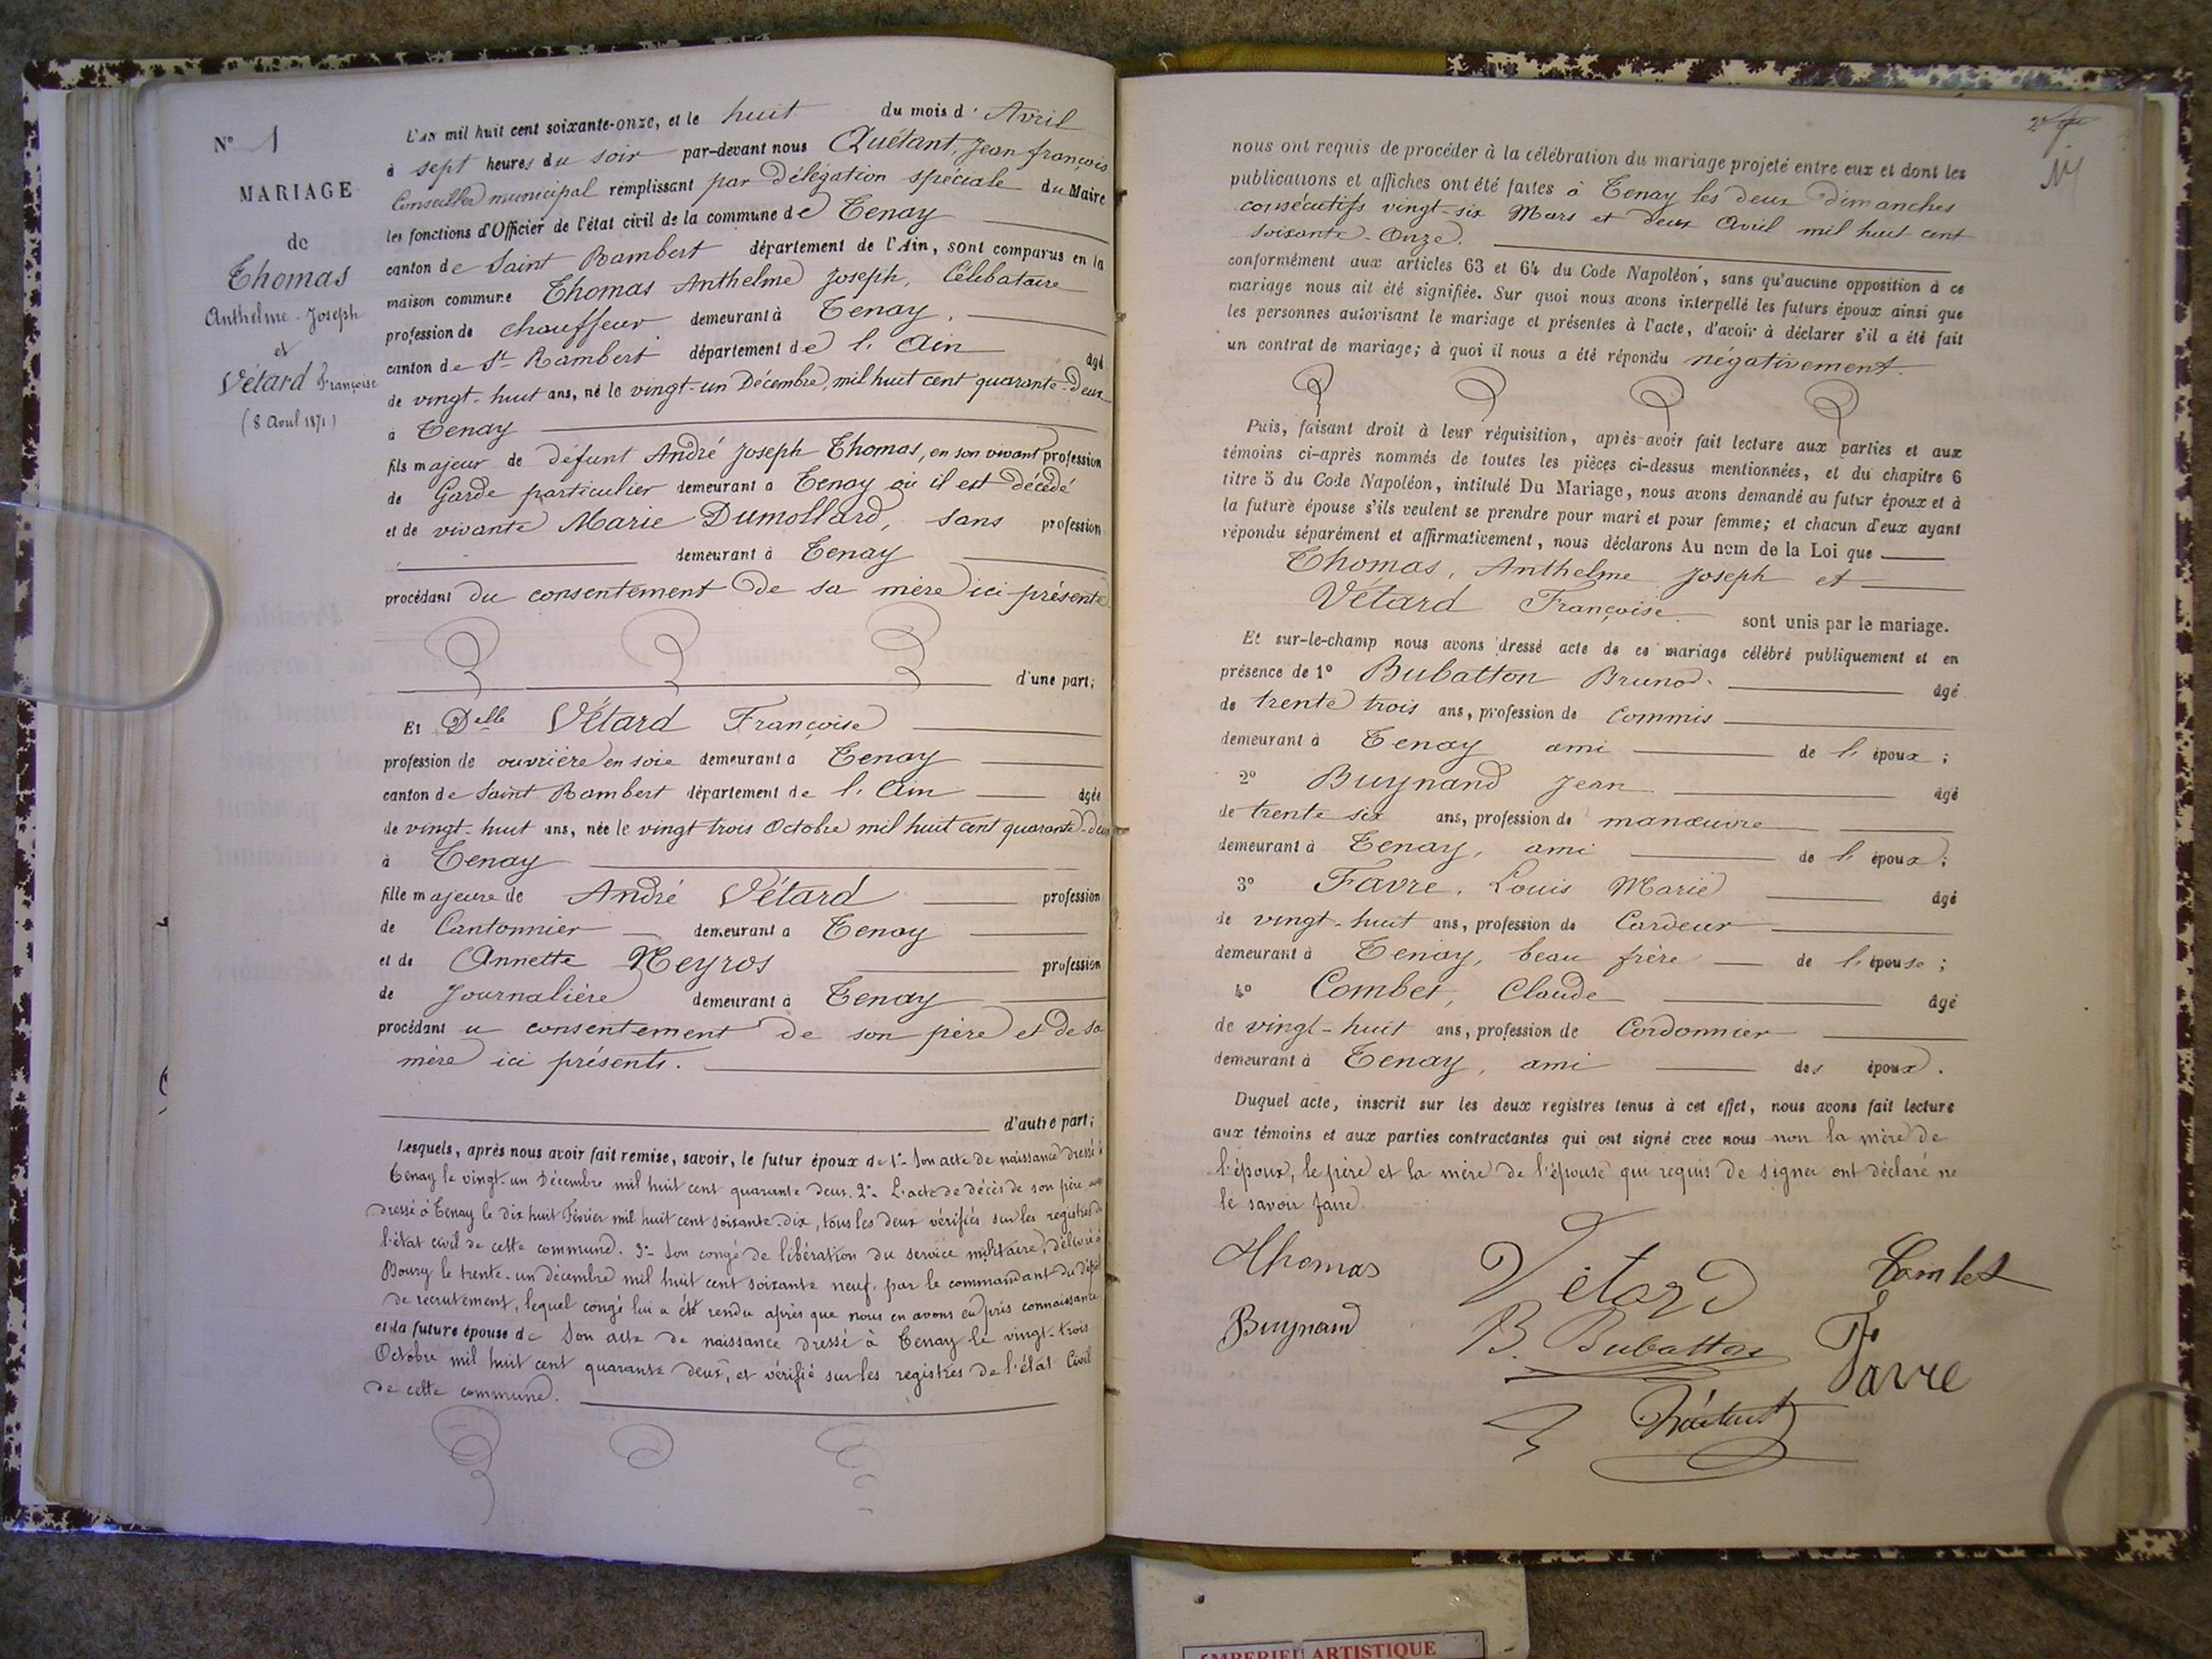 N° 1
MARIAGE
de
Thomas
Anthelme-Joseph
et
Vétard Françoise
(8 Avril 1871)
L'an mil huit cent soixante-onze, et le huit du mois d'Avril
à sept heures du soir par-devant nous Quétant, Jean françois
Conseiller municipal remplissant par délégation spéciale du Maire
les fonctions d'Officier de l'état civil de la commune de Tenay
canton de Saint Rambert département de l'Ain, sont comparus en la
maison commune Thomas Anthelme Joseph, Célibataire
profession de chauffeur demeurant à Tenay,
canton de St Rambert département de l'Ain âgé
de vingt-huit ans, né le vingt-un Décembre mil huit cent quarante-deux
à Tenay
fils majeur de défunt André Joseph Thomas, en son vivant profession
de Garde particulier demeurant à Tenay où il est décédé
et de vivante Marie Dumollard, sans profession
demeurant à Tenay
procédant du consentement de sa mère ici présente
d'une part;
Et Delle Vétard Françoise
profession de ouvrière en soie demeurant à Tenay
canton de Saint Rambert département de l'Ain âgée
de vingt-huit ans, née le vingt trois Octobre mil huit cent quarante-deux
à Tenay
fille majeure de André Vétard profession
de Cantonnier demeurant à Tenay
et de Annette Neyros profession
de Journalière demeurant à Tenay
procédant u consentement de son père et de sa
mère ici présents.
d'autre part;
Lesquels, après nous avoir fait remise, savoir, le futur époux de 1°- Son acte de naissance dressé à
Tenay le vingt-un Décembre mil huit cent quarante deux. 2°- L'acte de décès de son père
dressé à Tenay le dix huit Février mil huit cent soixante-dix, tous les deux vérifiés sur les registres de
l'état civil de cette commune. 3°- Son congé de libération du service militaire, délivré à
Bourg le trente-un décembre mil huit cent soixante neuf, par le commandant du dépôt
de recrutement, lequel congé lui a été rendu après que nous en avons eu pris connaissance
et la future épouse de Son acte de naissance dressé à Tenay le vingt-trois
Octobre mil huit cent quarante deux, et vérifié sur les registres de l'état Civil
de cette commune.
nous ont requis de procéder à la célébration du mariage projeté entre eux et dont les
publications et affiches ont été faites à Tenay les deux dimanches
consécutifs vingt-six Mars et deux Avril mil huit cent
soixante-Onze.
conformément aux articles 63 et 64 du Code Napoléon, sans qu'aucune opposition à ce
mariage nous ait été signifiée. Sur quoi nous avons interpellé les futurs époux ainsi que
les personnes autorisant le mariage et présentes à l'acte, d'avoir à déclarer s'il a été fait
un contrat de mariage; à quoi il nous a été répondu négativement.
Puis, faisant droit à leur réquisition, après avoir fait lecture aux parties et aux
témoins ci-après nommés de toutes les pièces ci-dessus mentionnées, et du chapitre 6
titre 5 du Code Napoléon, intitulé Du Mariage, nous avons demandé au futur époux et à
la future épouse s'ils veulent se prendre pour mari et pour femme; et chacun d'eux ayant
répondu séparément et affirmativement, nous déclarons Au nom de la Loi que
Thomas, Anthelme Joseph et
Vétard Françoise sont unis par le mariage.
Et sur-le-champ nous avons dressé acte de ce mariage célébré publiquement et en
présence de 1° Bubatton Bruno. âgé
de trente trois ans, profession de Commis
demeurant à Tenay ami de l'époux;
2° Buynand Jean âgé
de trente six ans, profession de manœuvre
demeurant à Tenay, ami de l'époux;
3° Favre, Louis Marie âgé
de vingt-huit ans, profession de Cardeur
demeurant à Tenay, beau frère de l'épouse;
4° Combet, Claude âgé
de vingt-huit ans, profession de Cordonnier
demeurant à Tenay, ami des époux.
Duquel acte, inscrit sur les deux registres tenus à cet effet, nous avons fait lecture
aux témoins et aux parties contractantes qui ont signé avec nous non la mère de
l'époux, le père et la mère de l'épouse qui requis de signer ont déclaré ne
le savoir faire.
Thomas Vétard Combet
Buynand B. Bubatton Favre
Quétant
IMBERIEU ARTISTIQUE